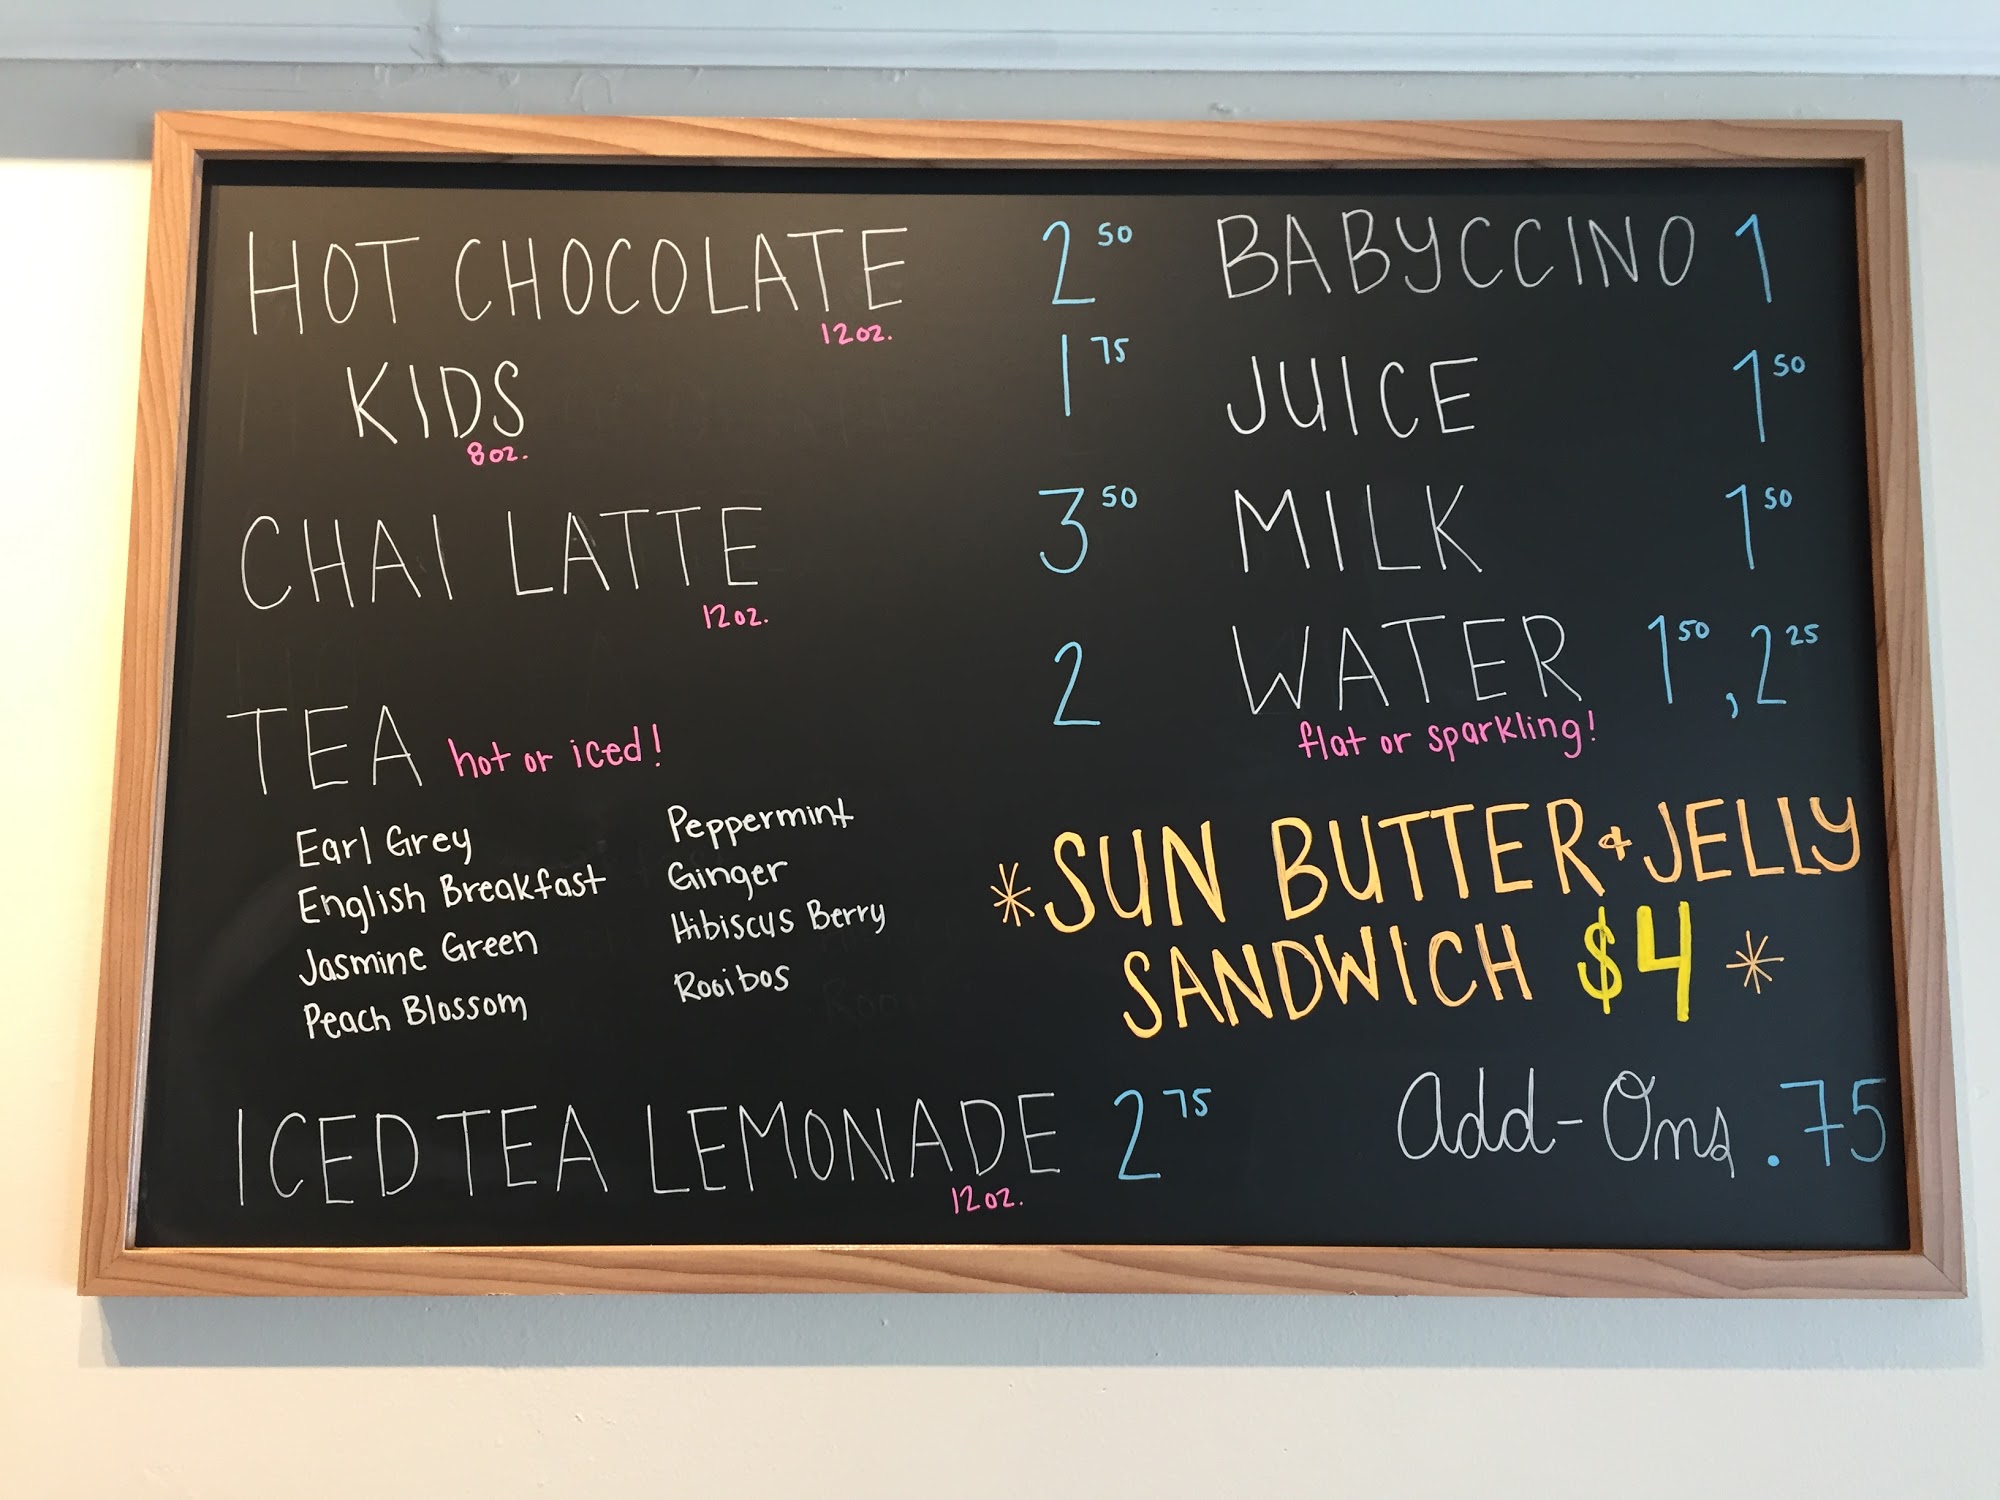 HOT CHOCOLATE 2 50
12oz.
KIDS 1 75
8oz.
CHAI LATTE 3 50
12oz.
TEA hot or iced! 2
Earl Grey
English Breakfast
Jasmine Green
Peach Blossom
Peppermint
Ginger
Hibiscus Berry
Rooibos
ICED TEA LEMONADE 2 75
12oz.
BABYCCINO 1
JUICE 1 50
MILK 1 50
WATER 1 50, 2 25
flat or sparkling!
*SUN BUTTER & JELLY
SANDWICH $4 *
Add-Ons .75